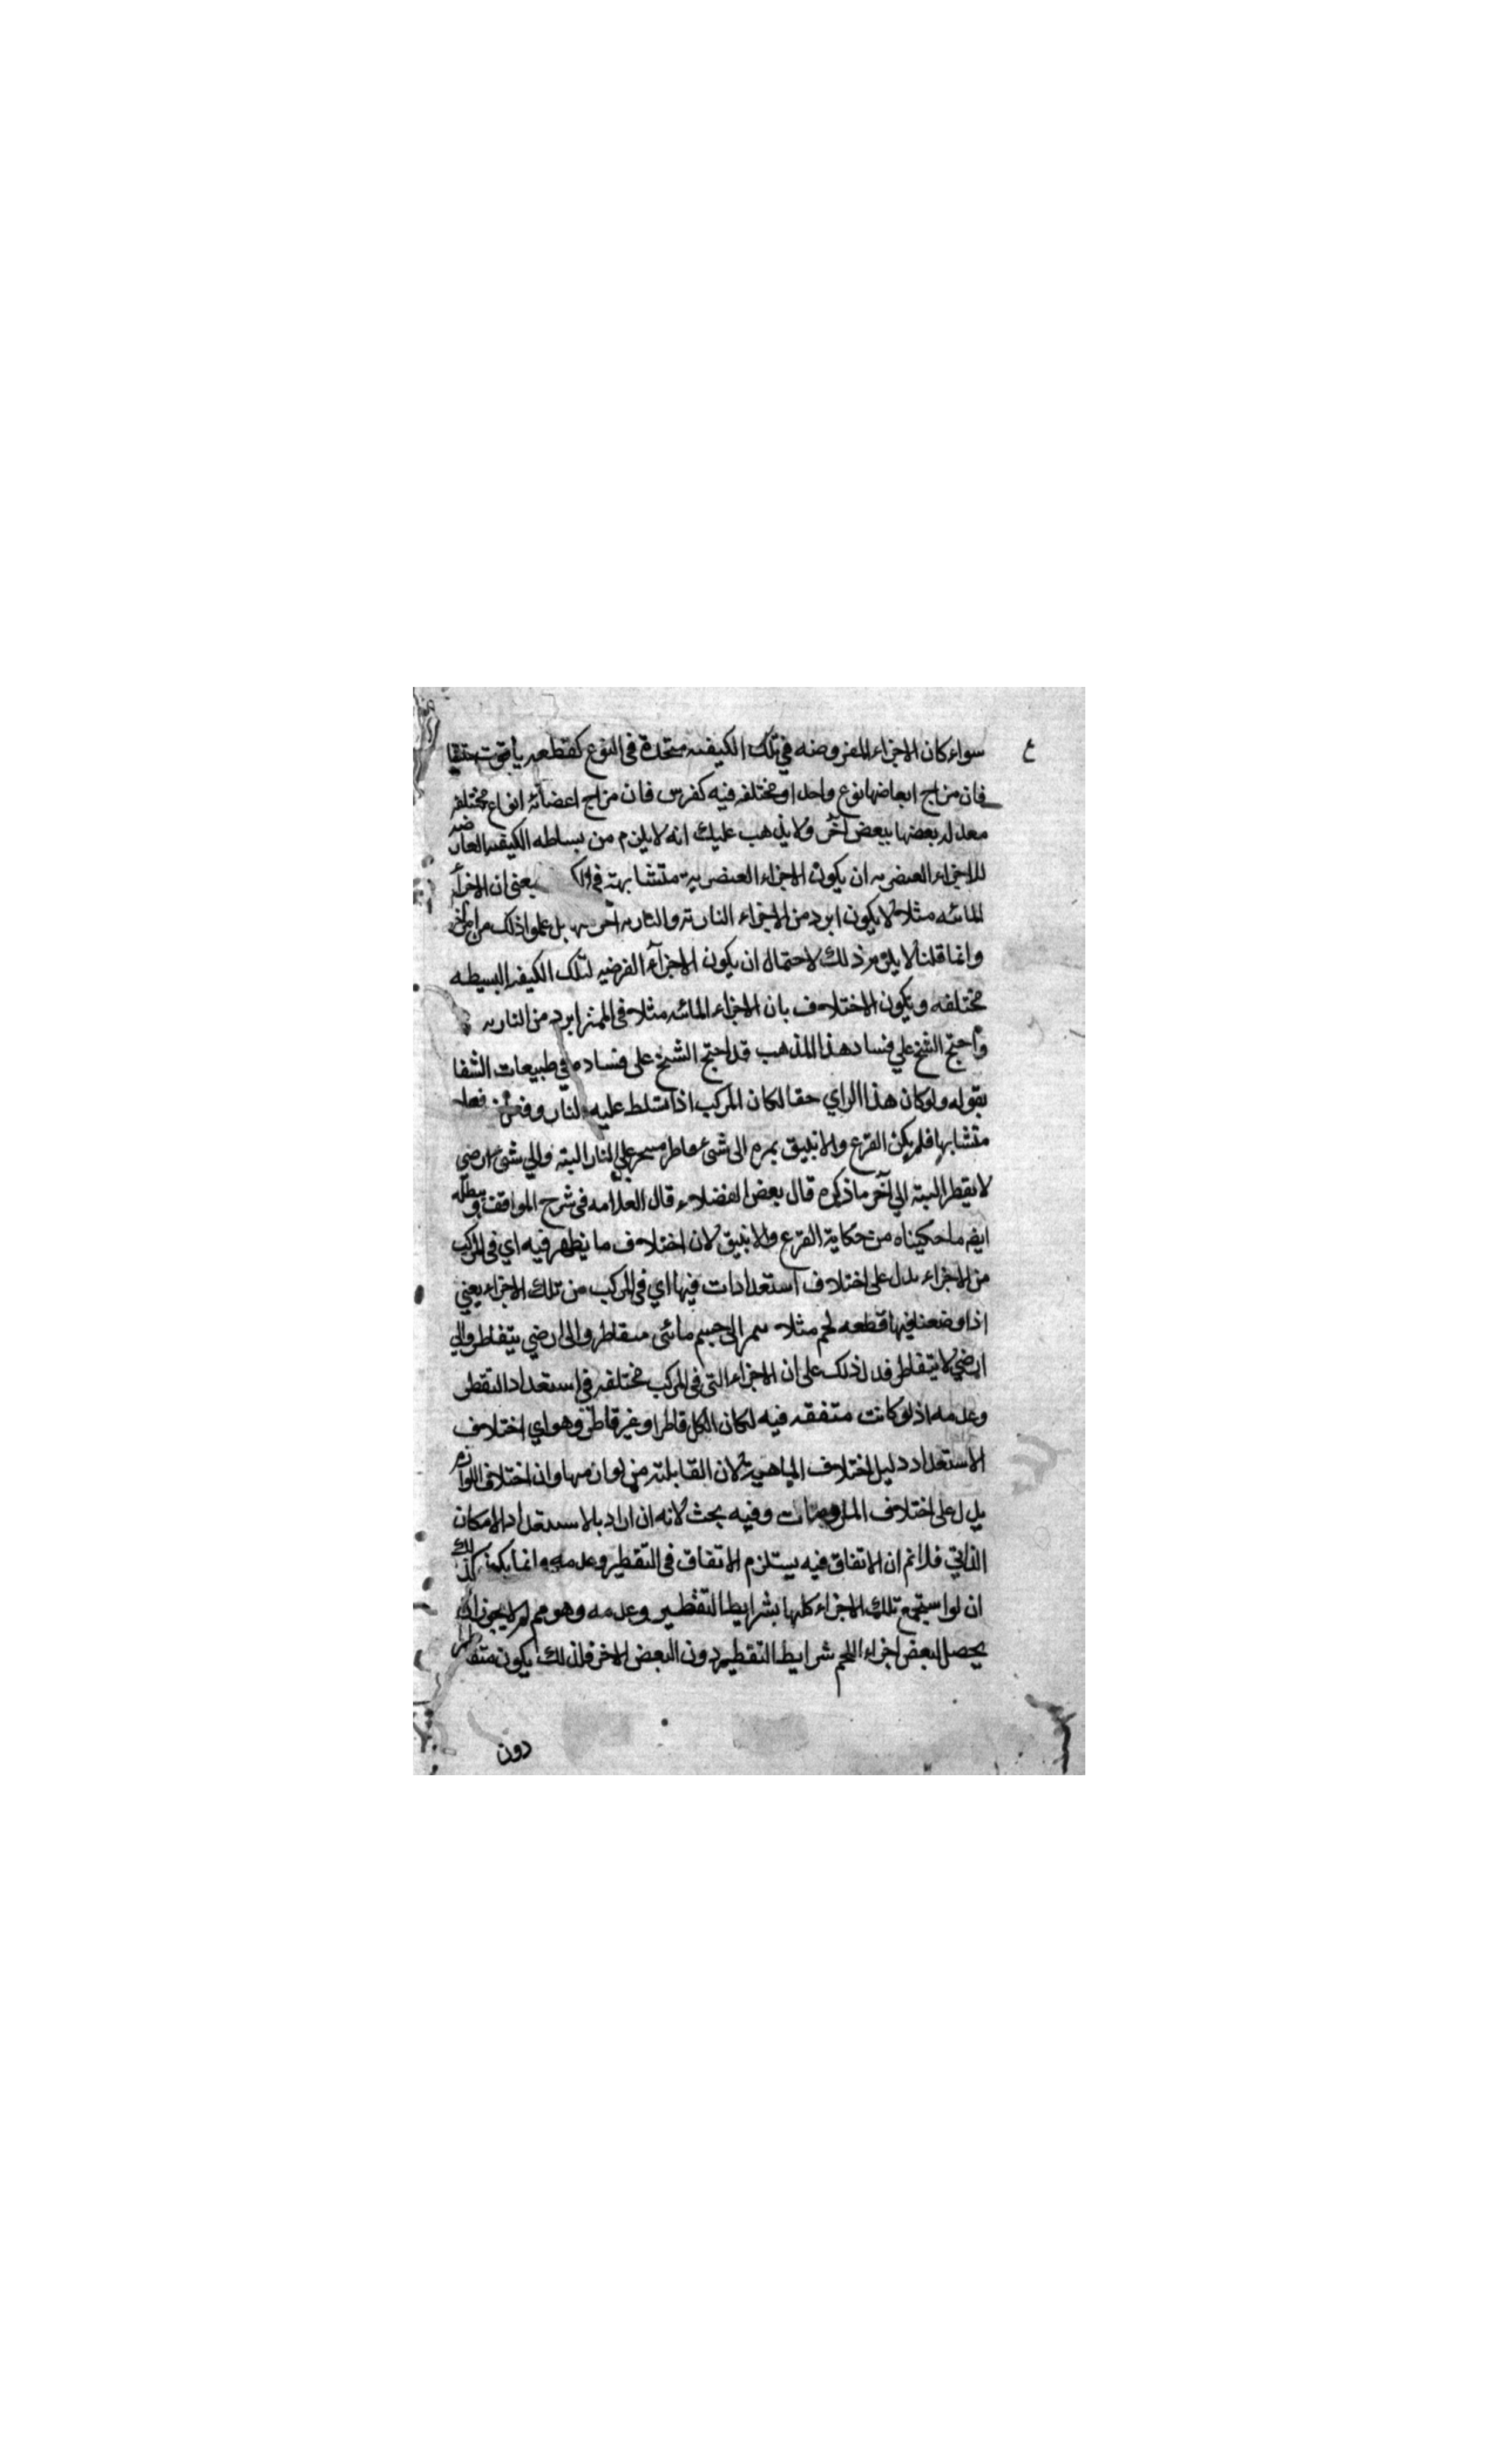 سواء كان الاجزاء المفروضه في تلك الكيفيه متحدة في النوع كقطعه ياقوت
فان مزاج ابعاضها نوع واحد او مختلفه فيه كفرس فان مزاج اعضائه انواع مختلفه
معدله بعضها ببعض آخر ولا يذهب عليك انه لا يلزم من بساطه الكيفيه العارضه
للاجزاء العنصريه ان يكون الاجزاء العنصرية متشابهة في يعني ان الاجزاء
المائيه مثلا لا يكون ابرد من الاجزاء الناريه والناريه احر بل علموا ذلك من
وانما قلنا لا يلزم ذلك لاحتمال ان يكون الاجزآء الفرضيه لتلك الكيفيه البسيطه
مختلفه ويكون الاختلاف بان الاجزاء المائيه مثلا في ابرد من الناريه
واحتج الشيخ علي فساد هذا المذهب قد احتج الشيخ على فساده في طبيعات الشفا
بقوله ولو كان هذا الراي حقا لكان المركب اذا تسلط عليه النار وفعل فعلا
متشابها فلم يكن القرع والانبيق يميزه الى شئ قاطر علي النار البته والي شئ ارضي
لا يقطر البتة الي آخر ما ذكره قال بعض الفضلاء قال العلامه في شرح المواقف ويبطله
ايضم ما حكيناه من حكاية القرع والانبيق لان اختلاف ما يظهر فيه اي في المركب
من الاجزاء يدل على اختلاف استعدادات فيها اي في المركب من تلك الاجزاء يعني
اذا وضعنا فيها قطعه لحم مثلا الى جسم مائي متقاطر والى ارضي يتقاطر والي
ارضي لا يتقاطر فدل ذلك على ان الاجزاء التي في المركب مختلفه في استعداد التقطر
وعدمه اذ لو كانت متفقه فيه لكان الكل قاطرا او غير قاطر وهو اي اختلاف
الاستعداد دليل اختلاف الماهية لان القابلية من لوازمها وان اختلاف اللوازم
يدل على اختلاف الملزومات وفيه بحث لانه ان اراد بالاستعداد الامكان
الذاتي فلا نم ان الاتفاق فيه يستلزم الاتفاق في التقطير وعدمه وانما يكون كذلك
ان لو استجمع تلك الاجزاء كلها بشرايط التقطير وعدمه وهو مم لم لا يجوز ان
يحصل لبعض اجزاء اللحم شرايط التقطير دون البعض الاخر فلذلك يكون متقاطرا
دون